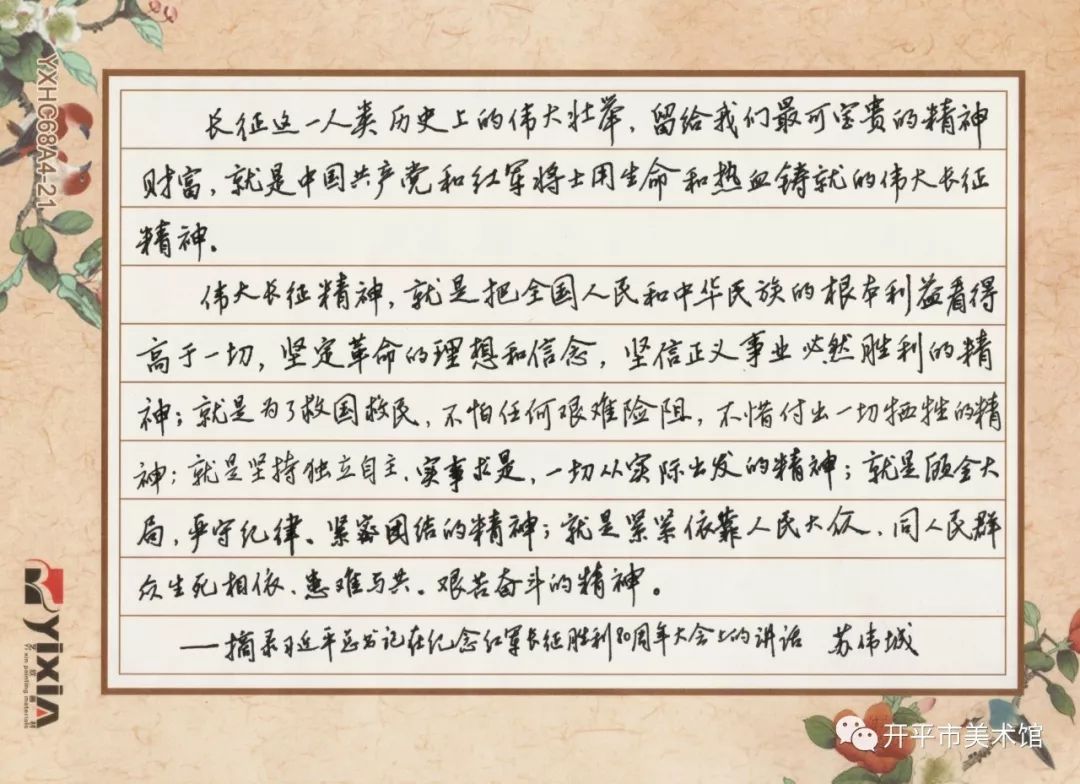 长征这一人类历史上的伟大壮举，留给我们最可宝贵的精神
财富，就是中国共产党和红军将士用生命和热血铸就的伟大长征
精神。
伟大长征精神，就是把全国人民和中华民族的根本利益看得
高于一切，坚定革命的理想和信念，坚信正义事业必然胜利的精
神；就是为了救国救民，不怕任何艰难险阻，不惜付出一切牺牲的精
神；就是坚持独立自主、实事求是，一切从实际出发的精神；就是顾全大
局，严守纪律、紧密团结的精神；就是紧紧依靠人民大众、同人民群
众生死相依、患难与共。艰苦奋斗的精神。
——摘录习近平总书记在纪念红军长征胜利80周年大会上的讲话 苏伟城
YXHC68A4-21
YixiA
Yi xin painting materials
开平市美术馆